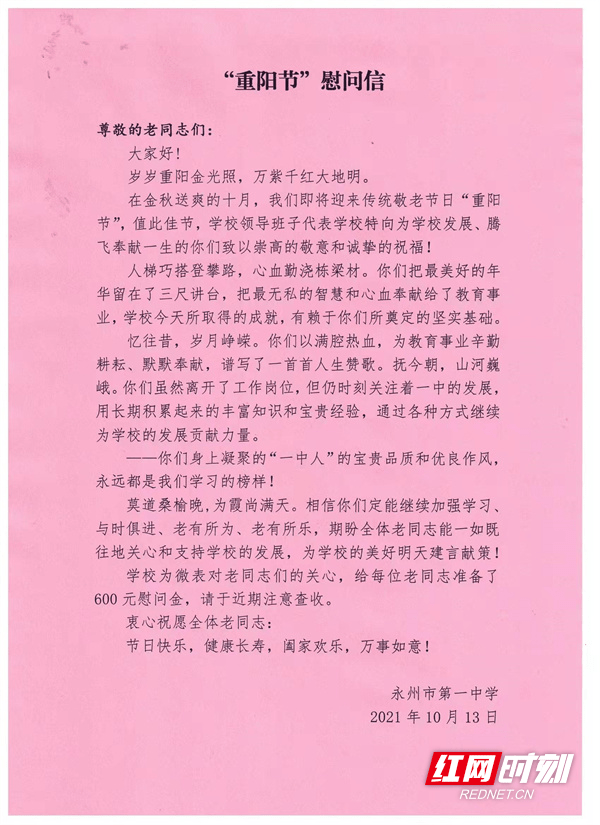 “重阳节”慰问信
尊敬的老同志们：
大家好！
岁岁重阳金光照，万紫千红大地明。
在金秋送爽的十月，我们即将迎来传统敬老节日“重阳
节”，值此佳节，学校领导班子代表学校特向为学校发展、腾
飞奉献一生的你们致以崇高的敬意和诚挚的祝福！
人梯巧搭登攀路，心血勤浇栋梁材。你们把最美好的年
华留在了三尺讲台，把最无私的智慧和心血奉献给了教育事
业，学校今天所取得的成就，有赖于你们所奠定的坚实基础。
忆往昔，岁月峥嵘。你们以满腔热血，为教育事业辛勤
耕耘、默默奉献，谱写了一首首人生赞歌。抚今朝，山河巍
峨。你们虽然离开了工作岗位，但仍时刻关注着一中的发展，
用长期积累起来的丰富知识和宝贵经验，通过各种方式继续
为学校的发展贡献力量。
——你们身上凝聚的“一中人”的宝贵品质和优良作风，
永远都是我们学习的榜样！
莫道桑榆晚，为霞尚满天。相信你们定能继续加强学习、
与时俱进、老有所为、老有所乐，期盼全体老同志能一如既
往地关心和支持学校的发展，为学校的美好明天建言献策！
学校为微表对老同志们的关心，给每位老同志准备了
600 元慰问金，请于近期注意查收。
衷心祝愿全体老同志：
节日快乐，健康长寿，阖家欢乐，万事如意！
永州市第一中学
2021 年 10 月 13 日
红网时刻
REDNET.CN